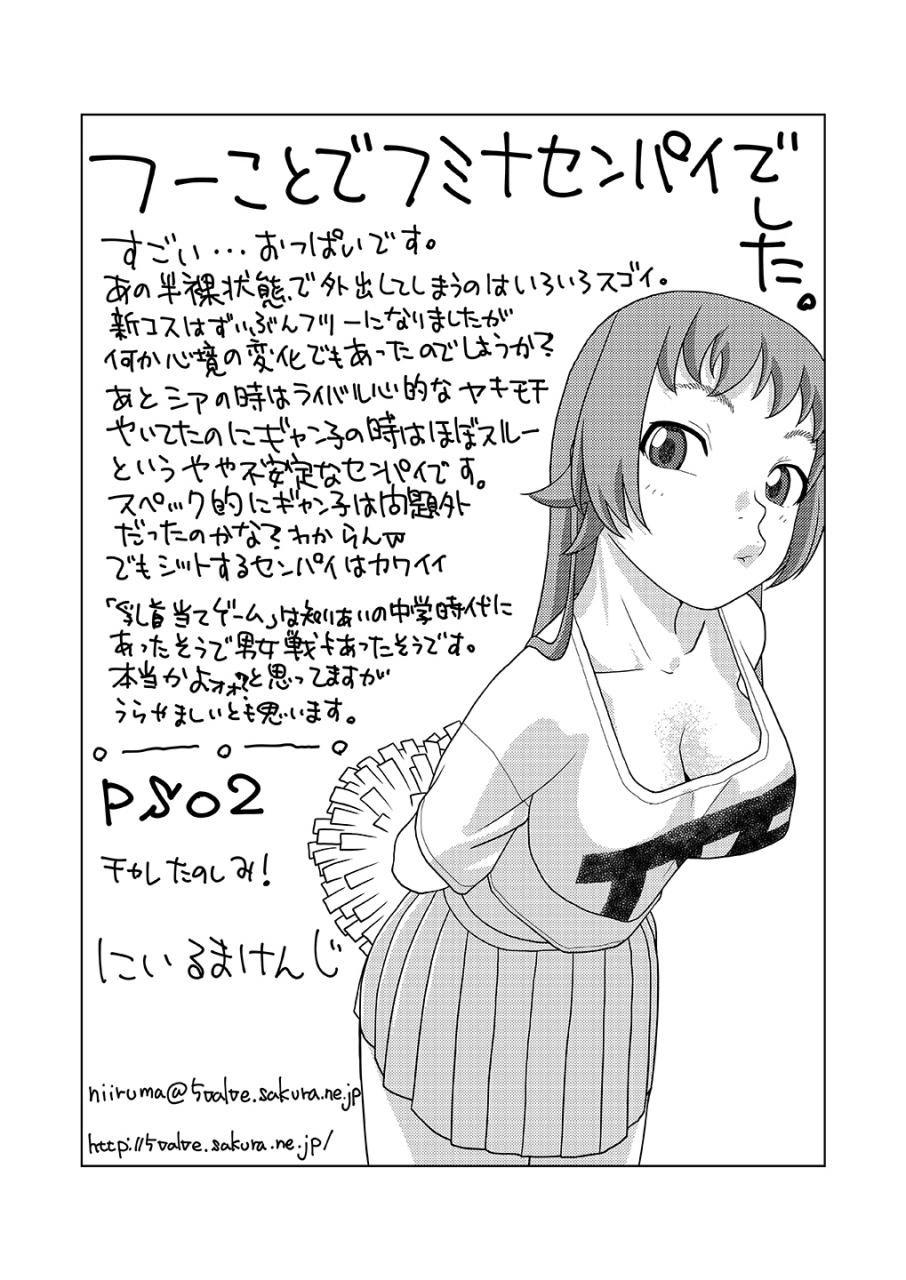 フーことでフミナセンパイでした。
すごい…おっぱいです。
あの半裸状態で外出してしまうのはいろいろスゴイ。
新コスはずいぶんフツーになりましたが
何か心境の変化でもあったのでしょうか？
あとシアの時はライバル心的なヤキモチ
やいてたのにギャン子の時はほぼスルー
というやや不安定なセンパイです。
スペック的にギャン子は問題外
だったのかな？わからん
でもシットするセンパイはカワイイ
「乳首当てゲーム」は知りあいの中学時代に
あったそうで男女戦もあったそうです。
本当かよォォ?と思ってますが
うらやましいとも思います。
PSO2
たのしみ！
にいるまけんじ
niiruma@5valve.sakura.ne.jp
http://5valve.sakura.ne.jp/